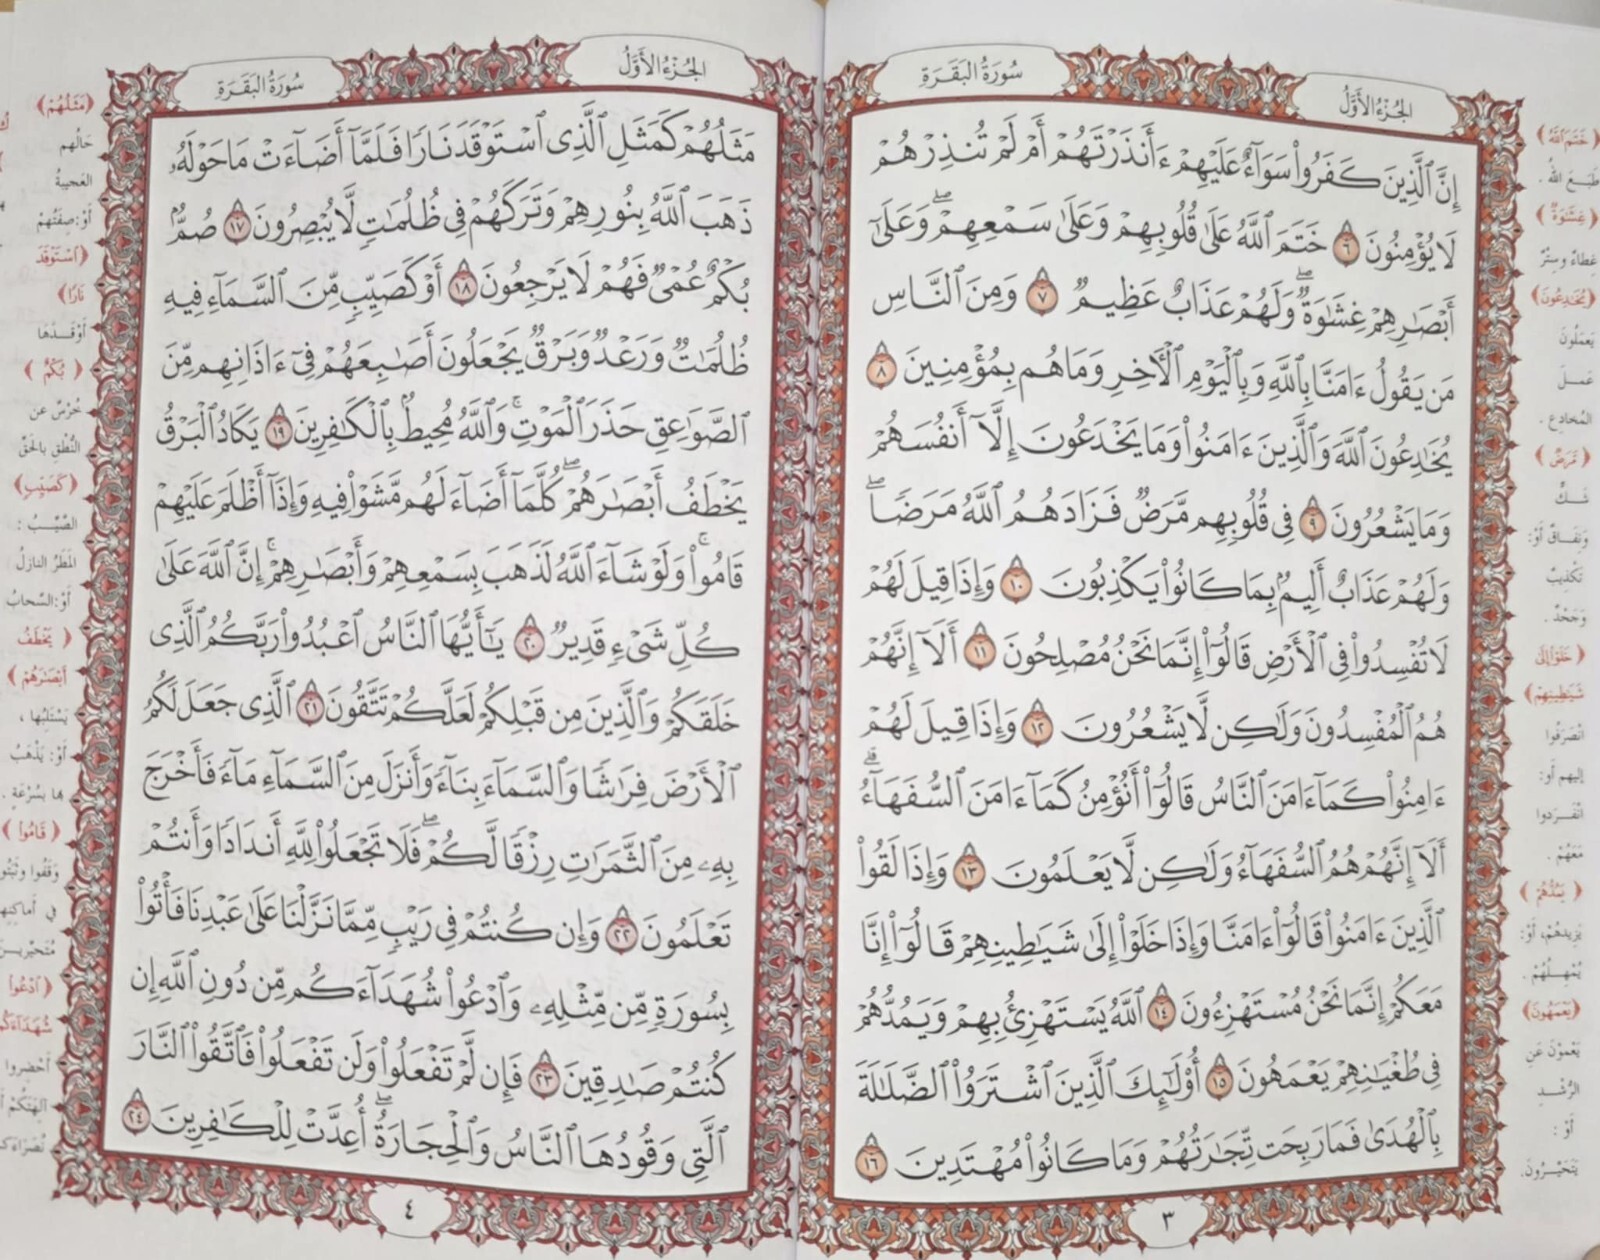 سُورَةُ البَقَرَةِ
الجُزْءُ الأَوَّلُ
إِنَّ ٱلَّذِينَ كَفَرُوا۟ سَوَآءٌ عَلَيْهِمْ ءَأَنذَرْتَهُمْ أَمْ لَمْ تُنذِرْهُمْ
لَا يُؤْمِنُونَ ٦ خَتَمَ ٱللَّهُ عَلَىٰ قُلُوبِهِمْ وَعَلَىٰ سَمْعِهِمْ ۖ وَعَلَىٰٓ
أَبْصَٰرِهِمْ غِشَٰوَةٌ ۖ وَلَهُمْ عَذَابٌ عَظِيمٌ ٧ وَمِنَ ٱلنَّاسِ
مَن يَقُولُ ءَامَنَّا بِٱللَّهِ وَبِٱلْيَوْمِ ٱلْأَخِرِ وَمَا هُم بِمُؤْمِنِينَ ٨
يُخَٰدِعُونَ ٱللَّهَ وَٱلَّذِينَ ءَامَنُوا۟ وَمَا يَخْدَعُونَ إِلَّآ أَنفُسَهُمْ
وَمَا يَشْعُرُونَ ٩ فِى قُلُوبِهِم مَّرَضٌ فَزَادَهُمُ ٱللَّهُ مَرَضًا ۖ
وَلَهُمْ عَذَابٌ أَلِيمٌۢ بِمَا كَانُوا۟ يَكْذِبُونَ ١٠ وَإِذَا قِيلَ لَهُمْ
لَا تُفْسِدُوا۟ فِى ٱلْأَرْضِ قَالُوٓا۟ إِنَّمَا نَحْنُ مُصْلِحُونَ ١١ أَلَآ إِنَّهُمْ
هُمُ ٱلْمُفْسِدُونَ وَلَٰكِن لَّا يَشْعُرُونَ ١٢ وَإِذَا قِيلَ لَهُمْ
ءَامِنُوا۟ كَمَآ ءَامَنَ ٱلنَّاسُ قَالُوٓا۟ أَنُؤْمِنُ كَمَآ ءَامَنَ ٱلسُّفَهَآءُ ۗ
أَلَآ إِنَّهُمْ هُمُ ٱلسُّفَهَآءُ وَلَٰكِن لَّا يَعْلَمُونَ ١٣ وَإِذَا لَقُوا۟
ٱلَّذِينَ ءَامَنُوا۟ قَالُوٓا۟ ءَامَنَّا وَإِذَا خَلَوْا۟ إِلَىٰ شَيَٰطِينِهِمْ قَالُوٓا۟ إِنَّا
مَعَكُمْ إِنَّمَا نَحْنُ مُسْتَهْزِءُونَ ١٤ ٱللَّهُ يَسْتَهْزِئُ بِهِمْ وَيَمُدُّهُمْ
فِى طُغْيَٰنِهِمْ يَعْمَهُونَ ١٥ أُو۟لَٰٓئِكَ ٱلَّذِينَ ٱشْتَرَوُا۟ ٱلضَّلَٰلَةَ
بِٱلْهُدَىٰ فَمَا رَبِحَت تِّجَٰرَتُهُمْ وَمَا كَانُوا۟ مُهْتَدِينَ ١٦
٣
﴿خَتَمَ ٱللَّهُ﴾
طَبَعَ اللهُ .
﴿غِشَٰوَةٌ﴾
غِطاءٌ وسِترٌ
﴿يُخَٰدِعُونَ﴾
يَعمَلُونَ
عَمَلَ
المُخَادِعِ .
﴿مَّرَضٌ﴾
شَكٌّ
وَنِفاقٌ أَوْ:
تَكْذيبٌ
وَجَحْدٌ .
﴿خَلَوْا۟ إِلَىٰ
شَيَٰطِينِهِمْ﴾
انْصَرَفُوا
إليهم أَو:
انْفَرَدوا
مَعَهُمْ .
﴿يَمُدُّهُمْ﴾
يَزِيدُهُمْ، أَوْ:
يُمْهِلُهُمْ .
﴿يَعْمَهُونَ﴾
يَعْمَوْنَ عَنِ
الرُّشْدِ
أَوْ :
يَتَحَيَّرُونَ.
الجُزْءُ الأَوَّلُ
سُورَةُ البَقَرَةِ
مَثَلُهُمْ كَمَثَلِ ٱلَّذِى ٱسْتَوْقَدَ نَارًا فَلَمَّآ أَضَآءَتْ مَا حَوْلَهُۥ
ذَهَبَ ٱللَّهُ بِنُورِهِمْ وَتَرَكَهُمْ فِى ظُلُمَٰتٍ لَّا يُبْصِرُونَ ١٧ صُمٌّۢ
بُكْمٌ عُمْىٌ فَهُمْ لَا يَرْجِعُونَ ١٨ أَوْ كَصَيِّبٍ مِّنَ ٱلسَّمَآءِ فِيهِ
ظُلُمَٰتٌ وَرَعْدٌ وَبَرْقٌ يَجْعَلُونَ أَصَٰبِعَهُمْ فِىٓ ءَاذَانِهِم مِّنَ
ٱلصَّوَٰعِقِ حَذَرَ ٱلْمَوْتِ ۚ وَٱللَّهُ مُحِيطٌۢ بِٱلْكَٰفِرِينَ ١٩ يَكَادُ ٱلْبَرْقُ
يَخْطَفُ أَبْصَٰرَهُمْ ۖ كُلَّمَآ أَضَآءَ لَهُم مَّشَوْا۟ فِيهِ وَإِذَآ أَظْلَمَ عَلَيْهِمْ
قَامُوا۟ ۚ وَلَوْ شَآءَ ٱللَّهُ لَذَهَبَ بِسَمْعِهِمْ وَأَبْصَٰرِهِمْ ۚ إِنَّ ٱللَّهَ عَلَىٰ
كُلِّ شَىْءٍ قَدِيرٌ ٢٠ يَٰٓأَيُّهَا ٱلنَّاسُ ٱعْبُدُوا۟ رَبَّكُمُ ٱلَّذِى
خَلَقَكُمْ وَٱلَّذِينَ مِن قَبْلِكُمْ لَعَلَّكُمْ تَتَّقُونَ ٢١ ٱلَّذِى جَعَلَ لَكُمُ
ٱلْأَرْضَ فِرَٰشًا وَٱلسَّمَآءَ بِنَآءً وَأَنزَلَ مِنَ ٱلسَّمَآءِ مَآءً فَأَخْرَجَ
بِهِۦ مِنَ ٱلثَّمَرَٰتِ رِزْقًا لَّكُمْ ۖ فَلَا تَجْعَلُوا۟ لِلَّهِ أَندَادًا وَأَنتُمْ
تَعْلَمُونَ ٢٢ وَإِن كُنتُمْ فِى رَيْبٍ مِّمَّا نَزَّلْنَا عَلَىٰ عَبْدِنَا فَأْتُوا۟
بِسُورَةٍ مِّن مِّثْلِهِۦ وَٱدْعُوا۟ شُهَدَآءَكُم مِّن دُونِ ٱللَّهِ إِن
كُنتُمْ صَٰدِقِينَ ٢٣ فَإِن لَّمْ تَفْعَلُوا۟ وَلَن تَفْعَلُوا۟ فَٱتَّقُوا۟ ٱلنَّارَ
ٱلَّتِى وَقُودُهَا ٱلنَّاسُ وَٱلْحِجَارَةُ ۖ أُعِدَّتْ لِلْكَٰفِرِينَ ٢٤
٤
﴿مَثَلُهُمْ﴾
حَالُهم
العَجيبةُ
أَوْ: صِفَتُهمْ
﴿ٱسْتَوْقَدَ
نَارًا﴾
أَوْقَدَهَا
﴿بُكْمٌ﴾
خُرْسٌ عن
النُّطْقِ بالحَقِّ
﴿كَصَيِّبٍ﴾
الصَّيِّبُ :
المَطَرُ النازلُ
أَوْ: السَّحابُ
﴿يَخْطَفُ
أَبْصَٰرَهُمْ﴾
يَسْتَلِبُها ،
أَوْ: يَذْهَبُ
بها بسُرْعَةٍ .
﴿قَامُوا۟﴾
وَقَفُوا وثَبَتُوا
في أماكنِهِمْ
مُتَحيِّرينَ
﴿ٱدْعُوا۟
شُهَدَآءَكُم
أَحْضِروا
آلِهَتَكُمْ